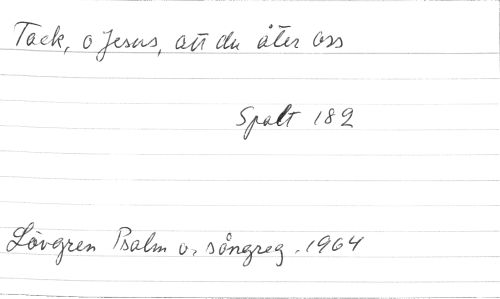 Tack, o Jesus, att du åter oss
Spalt 182
Lövgren Psalm o. sångreg. 1964